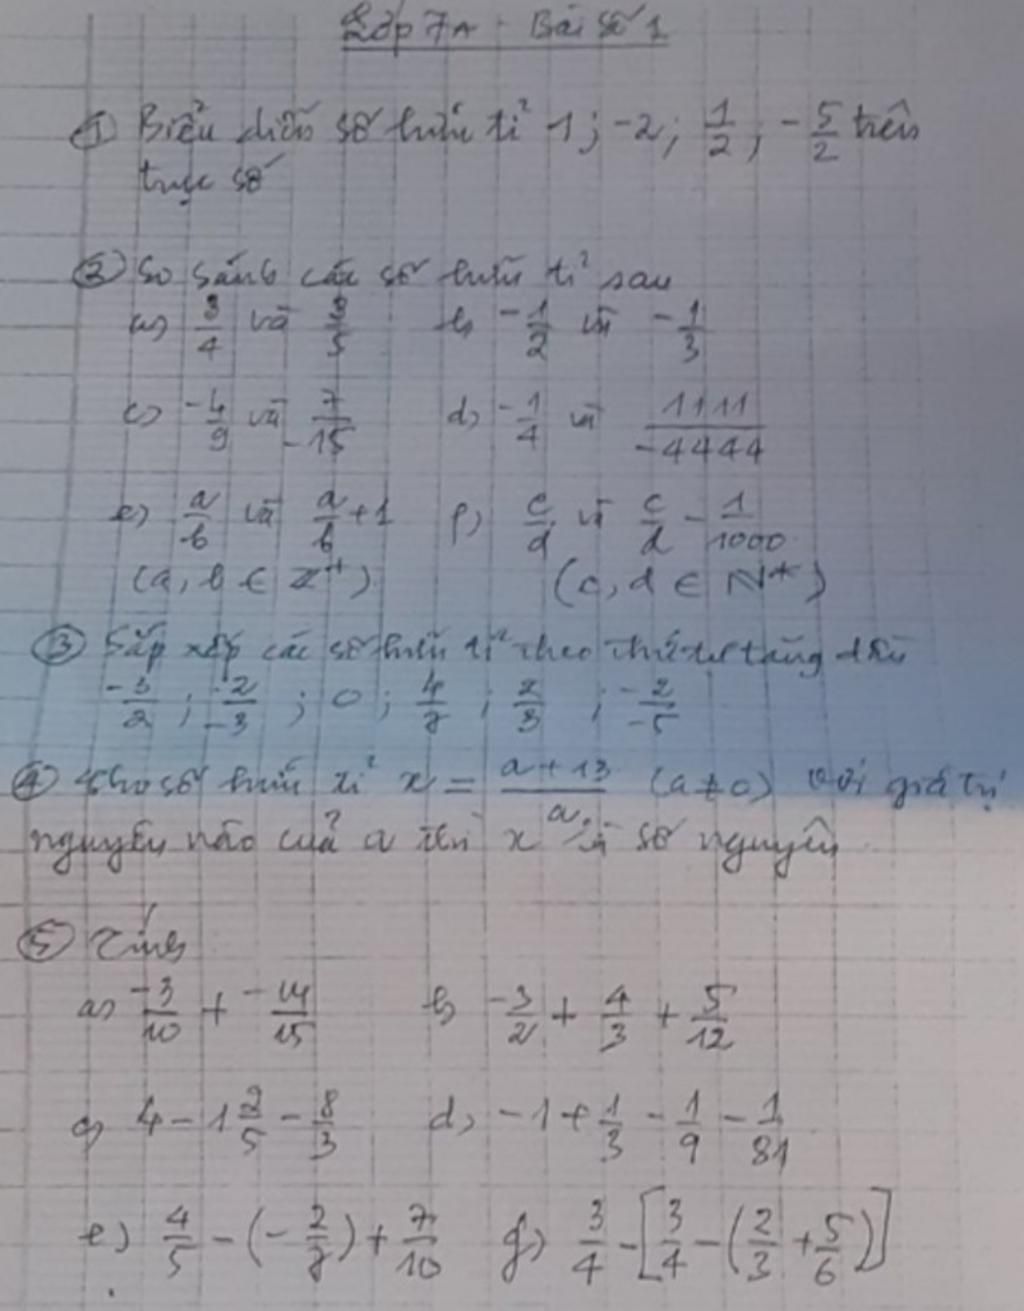 Lớp 7A - Bài số 1
① Biểu diễn số hữu tỉ 1; -2; 1/2; -5/2 trên
trục số
② So sánh các số hữu tỉ sau
a) 3/4 và 3/5 b) -1/2 và -1/3
c) -4/9 và 7/-15 d) -1/4 và 1111/-4444
e) a/b và a/b + 1 f) c/d và c/d - 1/1000
(a, b ∈ Z⁺) (c, d ∈ N*)
③ Sắp xếp các số hữu tỉ theo thứ tự tăng dần
-3/2; -2/-3; 0; 4/7; 2/3; -2/-5
④ Cho số hữu tỉ x = a+13/a (a ≠ 0) với giá trị
nguyên nào của a thì x là số nguyên
⑤ Tính
a) -3/10 + -14/15 b) -3/2 + 4/3 + 5/12
c) 4 - 1 2/5 - 8/3 d) -1 + 1/3 - 1/9 - 1/81
e) 4/5 - (-2/7) + 7/10 f) 3/4 - [3/4 - (2/3 + 5/6)]